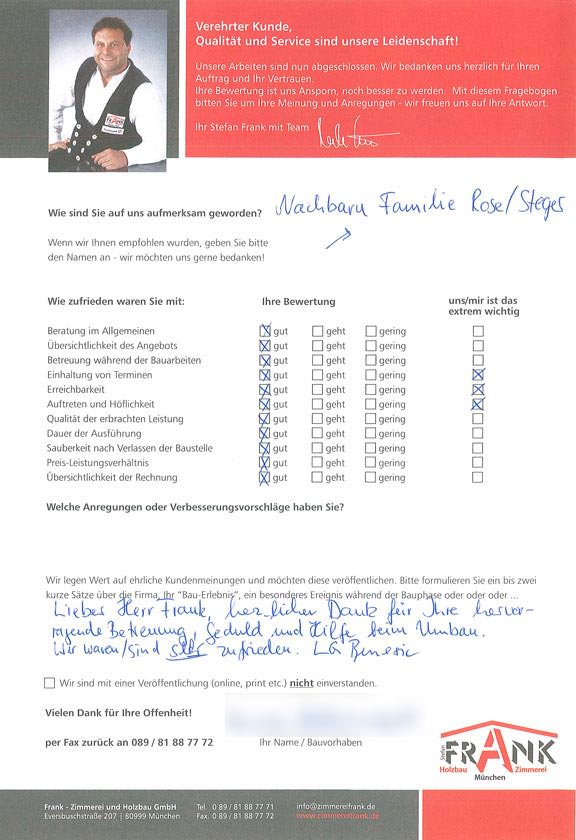 Verehrter Kunde,
Qualität und Service sind unsere Leidenschaft!
Unsere Arbeiten sind nun abgeschlossen. Wir bedanken uns herzlich für Ihren
Auftrag und Ihr Vertrauen.
Ihre Bewertung ist uns Ansporn, noch besser zu werden. Mit diesem Fragebogen
bitten Sie um Ihre Meinung und Anregungen - wir freuen uns auf Ihre Antwort.
Ihr Stefan Frank mit Team
Wie sind Sie auf uns aufmerksam geworden? Nachbarn Familie Rose/Steger
Wenn wir Ihnen empfohlen wurden, geben Sie bitte
den Namen an - wir möchten uns gerne bedanken!
Wie zufrieden waren Sie mit: Ihre Bewertung uns/mir ist das
extrem wichtig
Beratung im Allgemeinen gut geht gering
Übersichtlichkeit des Angebots gut geht gering
Betreuung während der Bauarbeiten gut geht gering
Einhaltung von Terminen gut geht gering
Erreichbarkeit gut geht gering
Auftreten und Höflichkeit gut geht gering
Qualität der erbrachten Leistung gut geht gering
Dauer der Ausführung gut geht gering
Sauberkeit nach Verlassen der Baustelle gut geht gering
Preis-Leistungsverhältnis gut geht gering
Übersichtlichkeit der Rechnung gut geht gering
Welche Anregungen oder Verbesserungsvorschläge haben Sie?
Wir legen Wert auf ehrliche Kundenmeinungen und möchten diese veröffentlichen. Bitte formulieren Sie ein bis zwei
kurze Sätze über die Firma, Ihr "Bau-Erlebnis", ein besonderes Ereignis während der Bauphase oder oder oder ...
Lieber Herr Frank, herzlichen Dank für Ihre hervor-
ragende Betreuung, Geduld und Hilfe beim Umbau.
Wir waren/sind sehr zufrieden. LG
Wir sind mit einer Veröffentlichung (online, print etc.) nicht einverstanden.
Vielen Dank für Ihre Offenheit!
per Fax zurück an 089 / 81 88 77 72 Ihr Name / Bauvorhaben
Stefan
FRANK
Holzbau Zimmerei
München
Frank - Zimmerei und Holzbau GmbH Tel. 0 89 / 81 88 77 71 info@zimmereifrank.de
Eversbuschstraße 207 | 80999 München Fax. 0 89 / 81 88 77 72 www.zimmereifrank.de